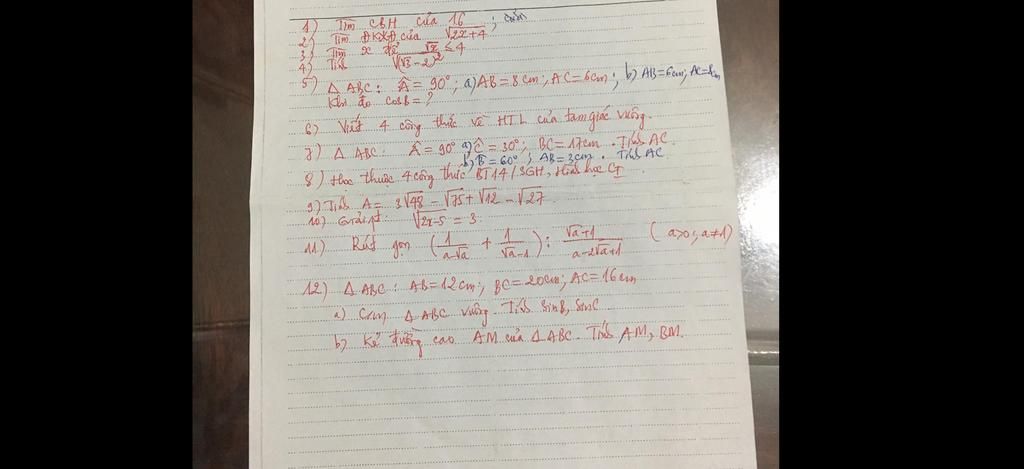 1) Tìm CBH của 16
2) Tìm ĐKXĐ của √2x+4
3) Tìm x để √x ≤ 4
4) Tính √(√3-2)²
5) Δ ABC: Â = 90°; a) AB = 8cm; AC = 6cm; b) AB = 6cm; AC = 8cm
Khi đó cosB = ?
6) Viết 4 công thức về HTL của tam giác vuông.
7) Δ ABC: Â = 90° a) Ĉ = 30°; BC = 17cm. Tính AC.
b) B̂ = 60°; AB = 3cm. Tính AC
8) Học thuộc 4 công thức BT14/SGK, Hình học CI
9) Tính A = 3√48 - √75 + √12 - √27
10) Giải pt: √2x-5 = 3.
11) Rút gọn (1/a-√a + 1/√a-1) : √a+1/a-2√a+1 (a>0; a≠1)
12) Δ ABC: AB = 12cm; BC = 20cm; AC = 16cm
a) Cmr Δ ABC vuông. Tính SinB, SinC
b) Kẻ đường cao AM của Δ ABC. Tính AM, BM.